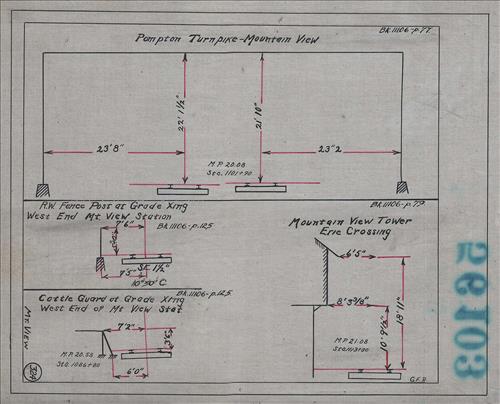 Pompton Turnpike-Mountain View
Bk.11106-p.77.
22' 1½"
21' 10"
23' 8"
23' 2
M.P. 20.08
Sta. 1101+90
R.W. Fence Post at Grade Xing
West End Mt. View Station
Bk.11106-p.125
7' 6"
7' 5"
SE 1½"
10°50' C
Bk.11106-p.79.
Mountain View Tower
Erie Crossing
6' 5"
8' 3⅛"
18' 11"
10' 9½"
M.P. 21.08
G.F.B.
Cattle Guard at Grade Xing
Bk.11106-p.125.
West End of Mt View Sta.
7' 2"
3' 6½"
M.P. 20.58
Sta. 1086+80
6' 0"
Mt. View
324
56103